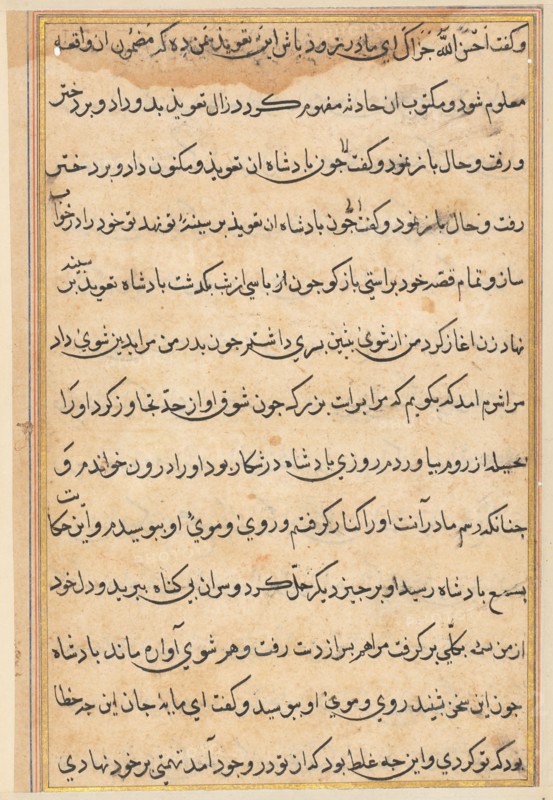 و کفت اَحْسَنَ اللَّهُ جَزَاکِ ای مادر زود باش این تعویذ بمن ده که مضمون ان واقعه
معلوم شود و مکتوب ان حادثه مفهوم کردد زال تعویذ بدو داد و برد ختر
و رفت و حال باز نمود و کفت جون بادشاه ان تعویذ و مکنون داد و برد ختر
رفت و حال باز نمود و کفت جون بادشاه ان تعویذ بر سینهٔ تو نهد تو خود را در خواب
ساز و تمام قصه خود براستی باز کو جون از باسی از شب بکذشت بادشاه تعویذ بر سینه
نهاد زن اغاز کرد من از شوی بیشین بسری داشتم جون بدر من مرا بدین شوی داد
مرا شرم امد که بکویم که مرا برات بزرکه جون شوق او از حدّ تجاوز کرد او را
بحیله از روم بیاوردم روزی بادشاه در شکار بود او را درون خواندم و
جنانکه رسم مادرانست او را کنار کرفتم و روی و موی او ببوسیدم و این حکایت
بسمع بادشاه رسید او بر جیز دیکر حمل کرد و سر ان بی کناه ببرید و دل خود
از من به کلّی بر کرفت مرا هم بسر از دست رفت و هم شوی آواره ماند بادشاه
جون این سخن شنید روی و موی او ببوسید و کفت ای مایهٔ جان این جه خطا
بود که تو کردی و این جه غلط بود که از تو در وجود آمد تهمتی بر خود نهادی